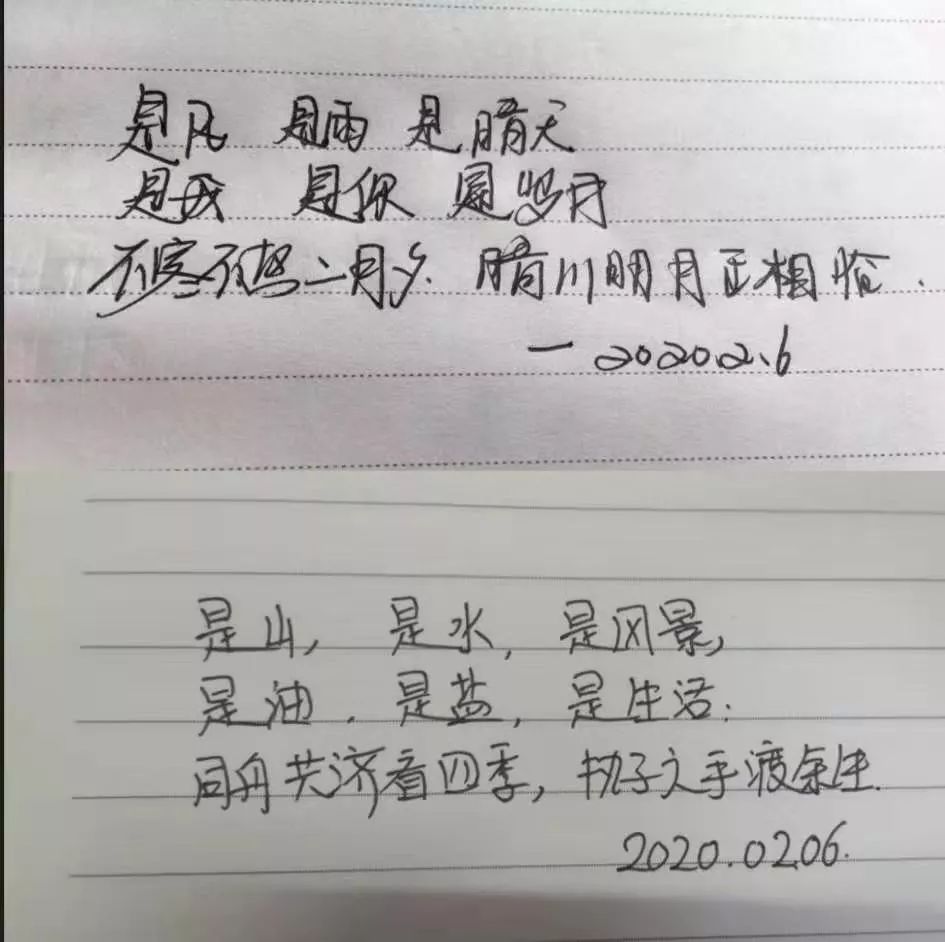 是风 是雨 是晴天
是我 是你 是岁月
不寒不热二月夕. 晴川明月正相临.
— 2020.2.6
是山, 是水, 是风景,
是油. 是盐, 是生活:
同舟共济看四季, 执子之手渡余生.
2020.02.06.